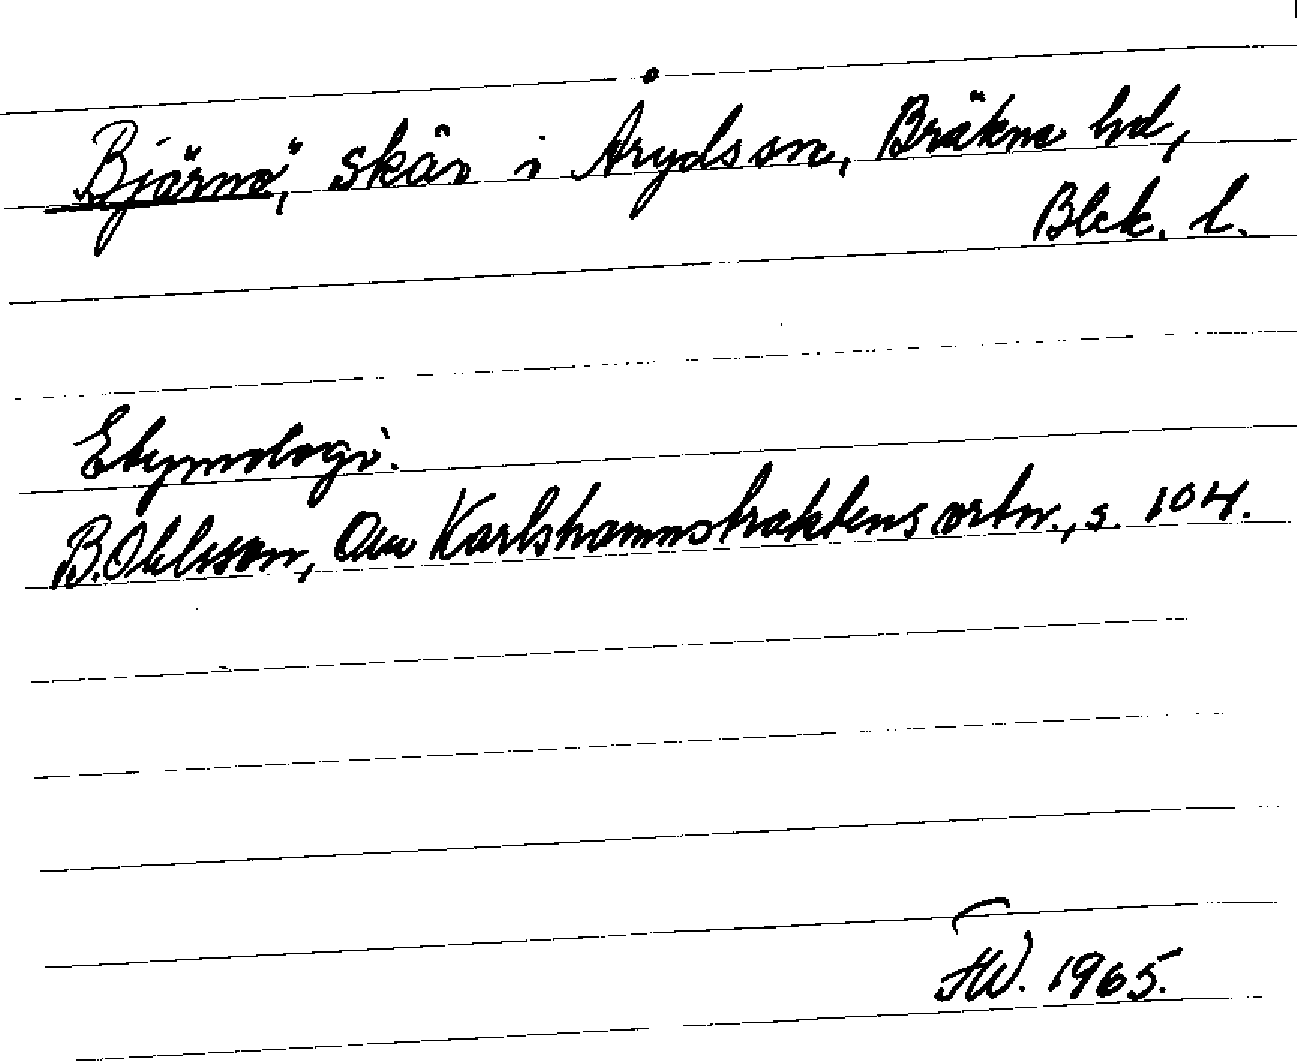 Björnö, skär i Åryds sn, Bräkne hd,
Blek. l.
Etymologi.
B. Ohlsson, Om Karlshamnstraktens ortn., s. 104.
FW. 1965.